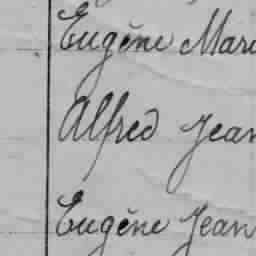 Eugène Mari
Alfred Jean
Eugène Jean